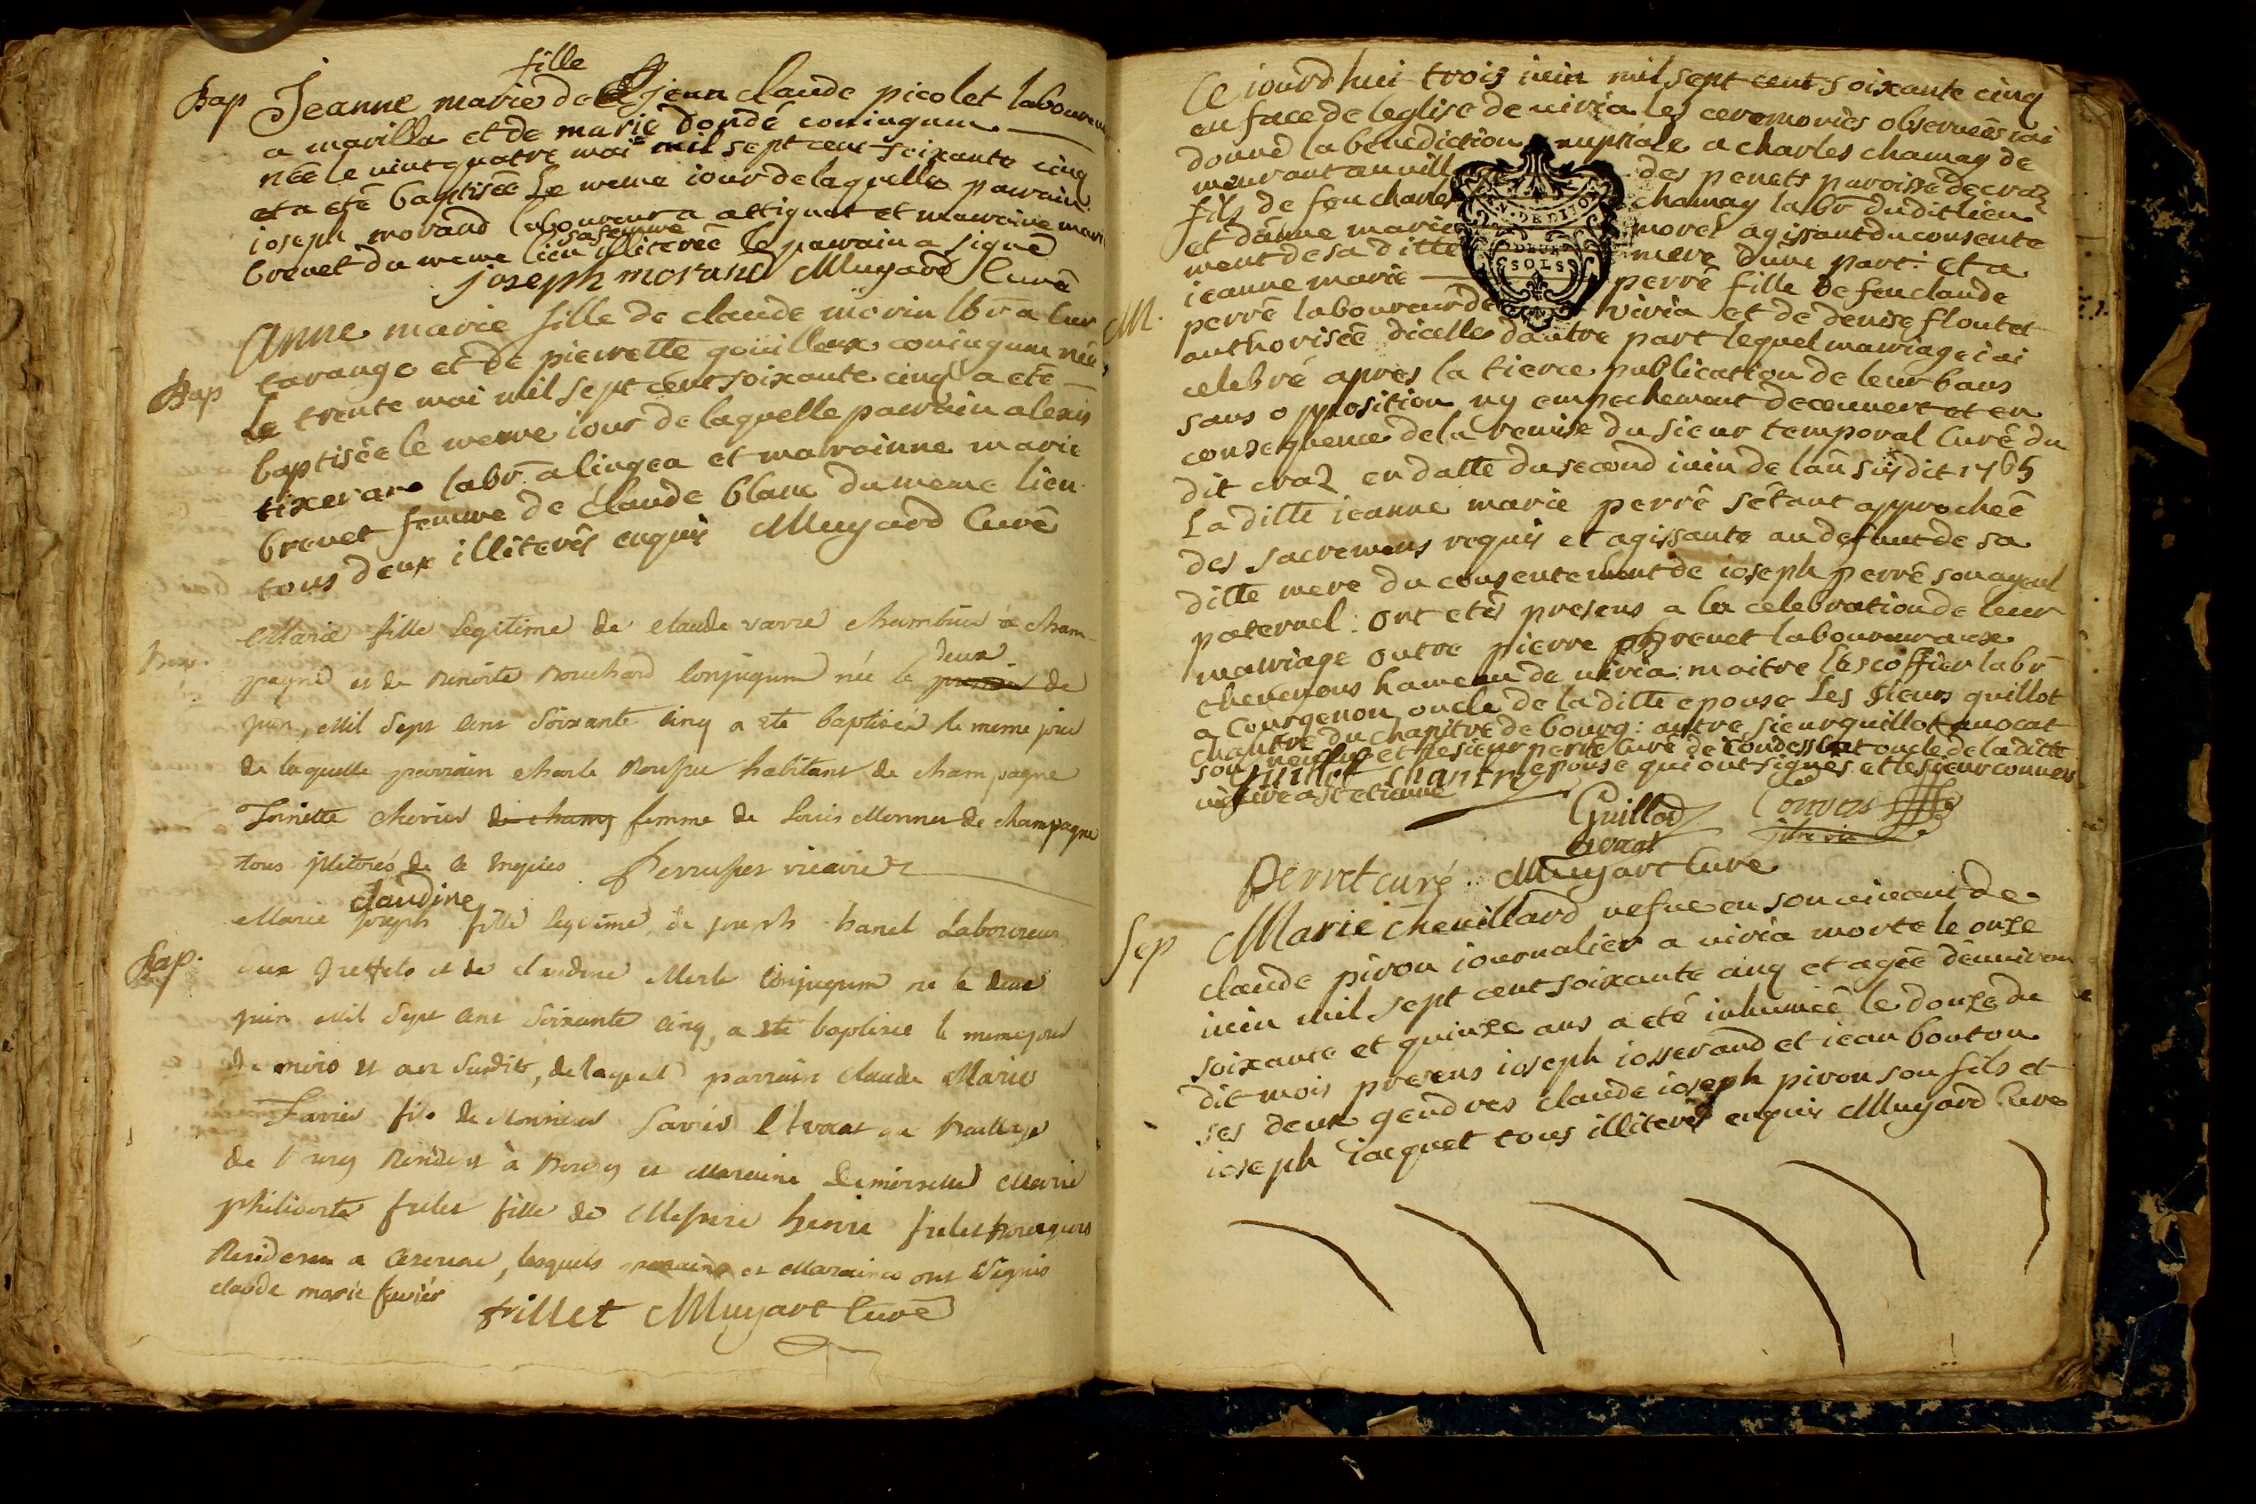 Bap
fille
Jeanne marie de jean claude picolet laboureur
a marilla et de marie dondé coniugum
née le vint quatre mai mil sept cent soixante cinq
et a eté baptisée le meme iour de laquelle parrain
ioseph morand laboureur a attignat et marraine marie
sa femme
brevet du meme lieu illiterée le parrain a signé
joseph morand Muyard Curé
Bap
Anne marie fille de claude morin lbr a lur
tarange et de pierrette gouilloux coniugum née
le trente mai mil sept cent soixante cinq a eté
baptisée le meme iour de laquelle parrain alexis
tixerar labr. a lingea et marrainne marie
brevet femme de claude blanc du meme lieu
tous deux illiterés enquis Muyard Curé
Bap.
Marie fille legitime de claude varre a Cham-
deux
pagne et de Benoite Bouchard Conjugum née le premier de
juin, Mil Sept Cent Soixante Cinq a ete baptisée le meme jour
de laquelle parrain charle habitant de champagne
Toinette de champ femme de Louis Monnet de champagne
tous illiterés de ce enquis vicaire
claudine
Marie Joseph fille legitime de joseph hanel Laboureur
Bap.
aux et de claudine Merle Conjugum née le deux
juin Mil Sept Cent Soixante Cinq, a ete baptisée le meme jour
de mois et an Susdits, de laquelle parrain claude Marie
favier fils de Monsieur favier Avocat au Bailliage
de Bourg Resident à Bourg et Maraine Demoiselle Marie
philiberte frilet fille de Messire henrie frilet Bourgeois
Resident a , lesquels parain et Maraine ont Signés
claude marie favier
frillet Muyart Curé
Ce iourd'hui trois iuin mil sept cent soixante cinq
en face de leglise de uiria les ceremonies observées iai
donné la benediction nuptiale a charles chamay de
meurant au vill des penets paroisse de craz
IN. DEDITION
DEUX
SOLS
fils de feu charle chamay labr dudit lieu
et danne marie morel agissant du consente
ment de sa ditte mere dune part: et a
ieanne marie perré fille de feu claude
M.
perré laboureur de viria et de denise floutet
authorisée dicelle dautre part lequel mariage iai
celebré apres la tierce publication de leur bans
sans opposition ny empechement decouvert et en
consequence de la remise du sieur temporal Curé du
dit craz en datte du second iuin de lan susdit 1765
La ditte ieanne marie perré sétant approchée
des sacremens requis et agissante au defaut de sa
ditte mere du consentement de ioseph perré son ayeul
paternel: ont etés presens a la celebration de leur
mariage outre pierre brevet laboureur aux
chevenons hameau de uiria: maitre lescoffier labr
a Courgenou oncle de la ditte epouse Les sieurs quillot
chantre du chapitre de bourg: autre sieur quillot avocat
son neveu et le sieur perret curé de Condessiat oncle de la ditte
epouse qui ont signés et le sieur convers
a st etienne
Guillot chantre
Guillod
avocat
Convers
Perret curé. Muyart Curé
Sep
Marie chevillard vefve en son vivant de
claude piron iournalier a viria morte le onze
iuin mil sept cent soixante cinq et agée denviron
soixante et quinze ans a eté inhumée le douze du
dit mois presens ioseph iosserand et iean bouton
ses deux gendres claude ioseph piron son fils et
ioseph iacquet tous illiterés enquis Muyard Curé